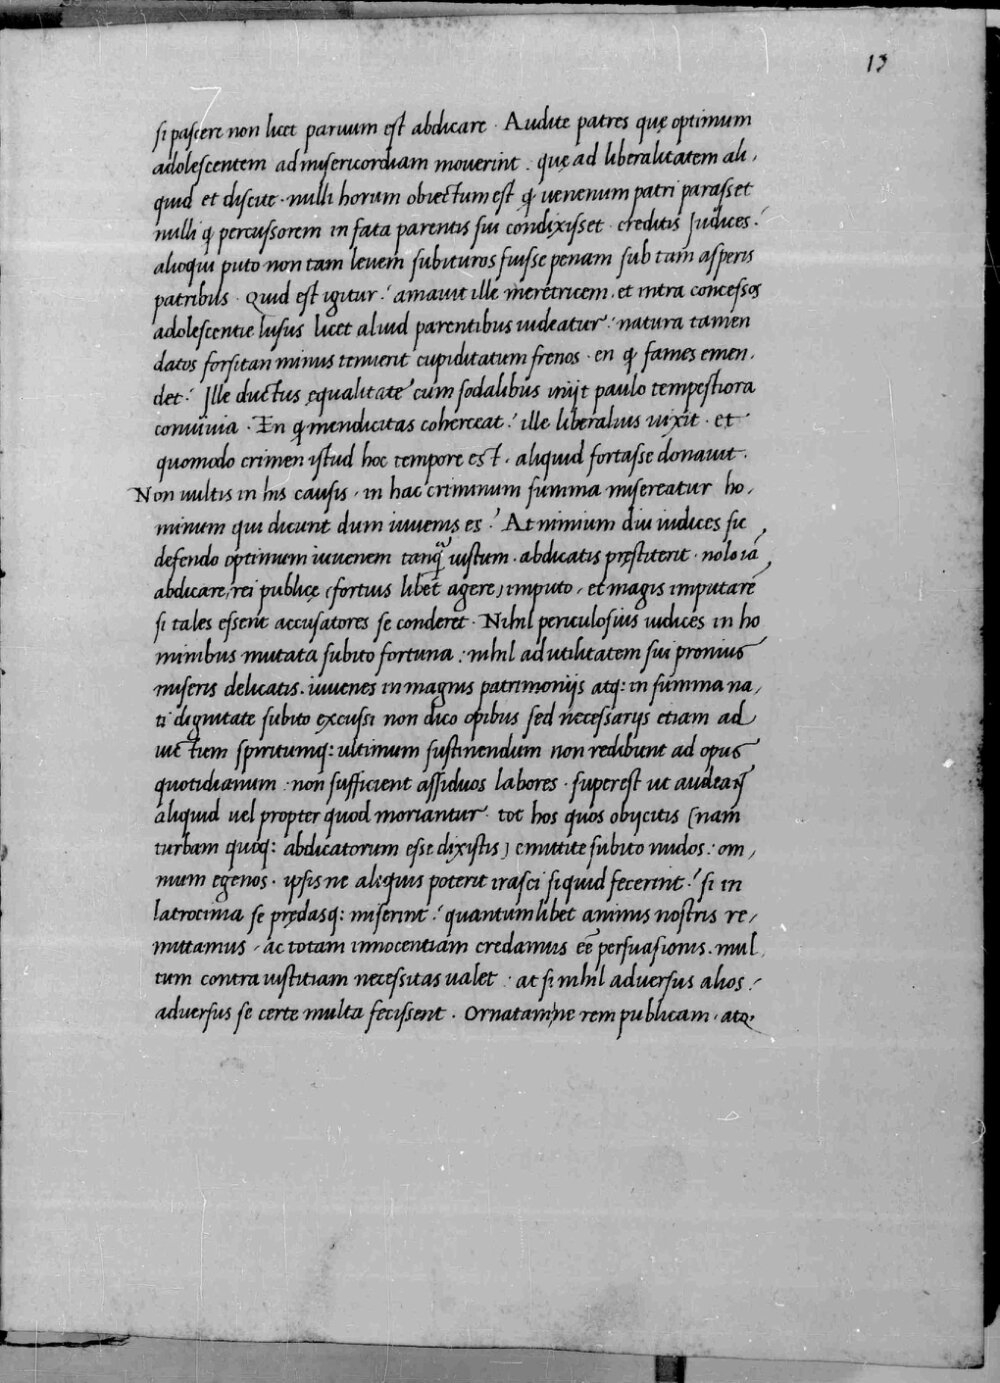 13
si pascere non licet paruum est abdicare · Audite patres quę optimum
adolescentem ad misericordiam mouerint . quę ad liberalitatem ali,
quid et discite · nulli horum obiectum est ꝙ uenenum patri parasset
nulli ꝙ percussorem in fata parentis sui condixisset · creditis Judices ?
alioqui puto non tam leuem subituros fuisse penam sub tam asperis
patribus · Quid est igitur ? amauit ille meretricem . et intra concessos
adolescentie lusus licet aliud parentibus uideatur : natura tamen
datos forsitan minus tenuerit cupiditatum frenos · en ꝙ fames emen,
det ? Jlle ductus ęqualitate cum sodalibus inijt paulo tempestiora
conuiuia · En ꝙ mendicitas coherceat ? ille liberalius uixit · et
quomodo crimen istud hoc tempore est . aliquid fortasse donauit .
Non uultis in his causis , in hac criminum summa misereatur ho,
minum qui dicunt dum iuuenis es ? At nimium diu iudices sic
defendo optimum iuuenem tanq̃ iustum . abdicatis pręstiterit · nolo iã
abdicare, rei publicę (fortius libet agere) imputo , et magis imputarẽ
si tales essent accusatores se conderet · Nihil periculosius iudices in ho
minibus mutata subito fortuna : nihil ad utilitatem sui pronius
miseris delicatis . iuuenes in magnis patrimonijs atq: in summa na,
ti dignitate subito excussi non dico opibus sed necessarijs etiam ad
uictum spiritumq: ultimum sustinendum non redibunt ad opus
quotidianum · non sufficient assiduos labores · superest ut audeãt
aliquid uel propter quod moriantur · tot hos quos obijcitis (nam
turbam quoq: abdicatorum esse dixistis) emittite subito nudos : om,
nium egenos · ipsis ne aliquis poterit irasci si quid fecerint ? si in
latrocinia se prędasq: miserint ? quantumlibet animis nostris re,
mittamus , ac totam innocentiam credamus eẽ persuasionis . mul
tum contra iustitiam necessitas ualet · at si nihil aduersus alios ?
aduersus se certe multa fecissent . Ornatam ne rem publicam , atq,